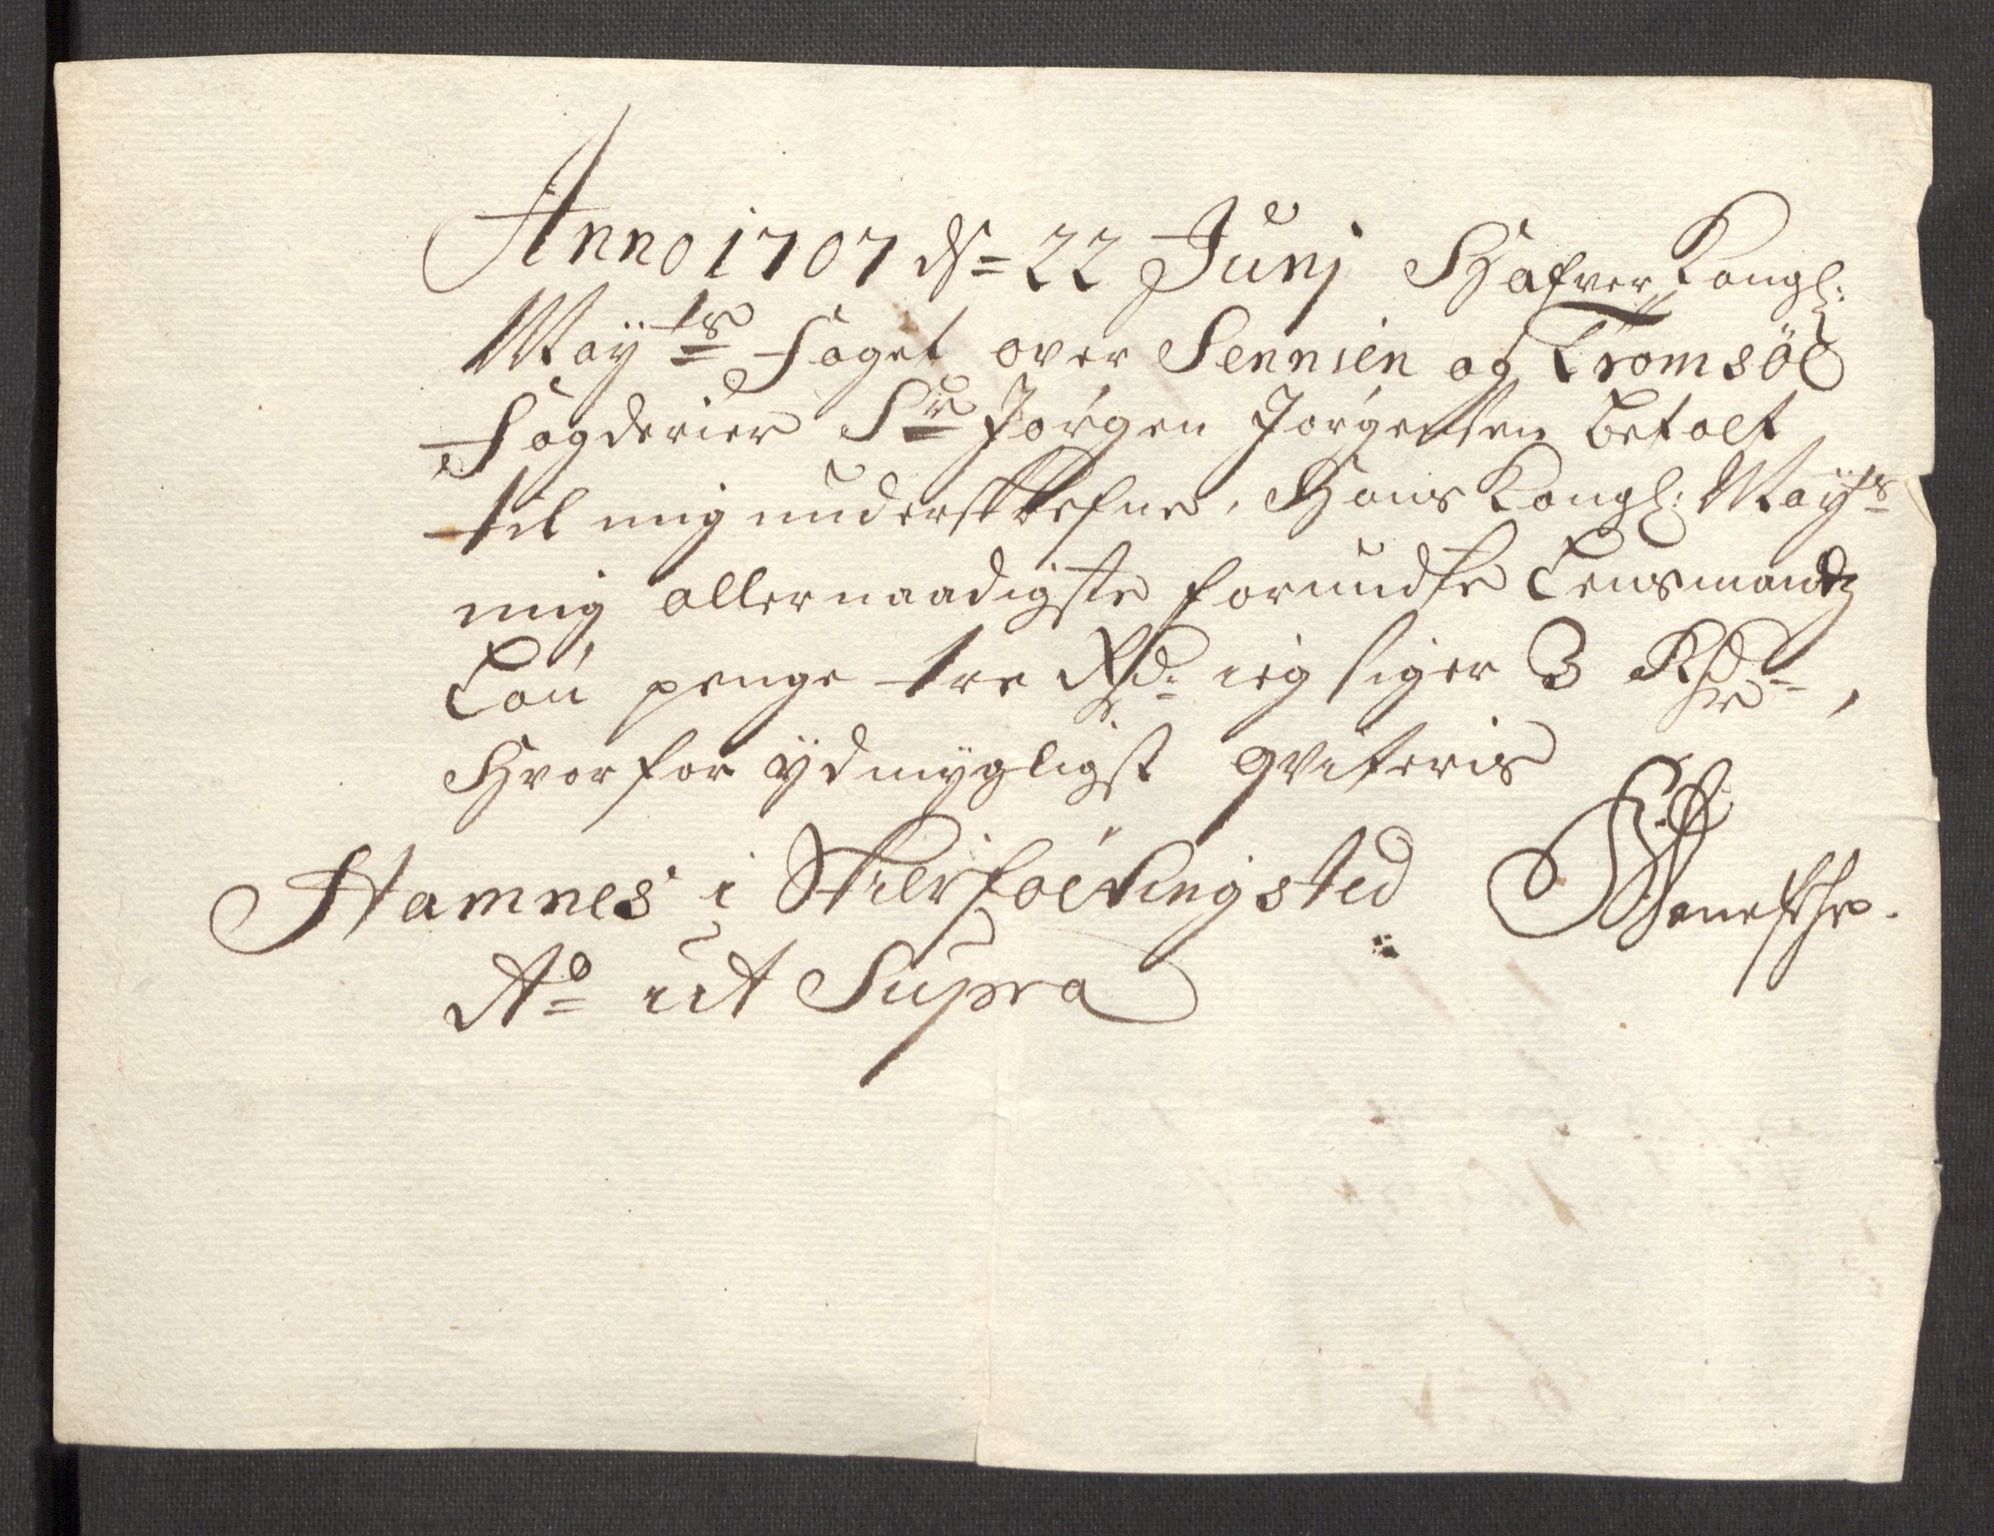 Anno 1707 d= 22 Junj Hafver Kongl:
Mayts Foget over Sennien og Tromsöe
Fogderier Sr Jørgen Jørgensen betalt
til mig underskrefne, Hans Kongl: Mayts
mig allernaadigste forundte Lensmandz
Løn penge tre Rd: ieg siger 3 Rdr,
Hvorfor ydmygligst qviteris
Hamnes i Skierføe tingsted
Ao ut Supra